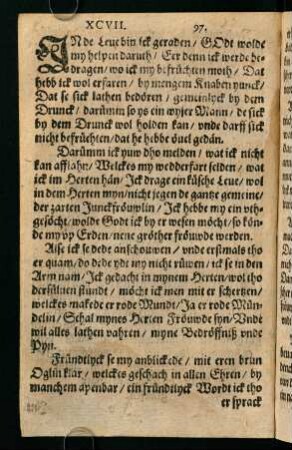 XCVII. 97.
INde Leue bin ick geraden / GOdt wolde
my helpen daruth / Eer denn ick werde be-
dragen / wo ick my befrüchten moth / Dat
hebb ick wol erfaren / by mengem Knaben yunck /
Dat se sick lathen bedören / gemeinlyck by dem
Drunck / darümm so ys ein wyser Mann / de sick
by dem Drunck wol holden kan / vnde darff sick
nicht befrüchten / dat he hebbe öuel gedän.
Darümm ick yuw dho melden / wat ick nicht
kan afflahn / Welckes my wedderfart selden / wat
ick im Herten hän / Ick drage ein küsche Leue / wol
in dem Herten myn / nicht jegen de gantze gemeine /
der zarten Junckfröuwlin / Ick hebbe my ein vth-
gesöcht / wolde Godt ick by er wesen möcht / so kön-
de my vp Erden / nene gröther fröuwde werden.
Alse ick se dede anschouwen / vnde erstmals tho
er quam / do dede ydt my nicht rüwen / ick se in den
Arm nam / Ick gedacht in mynem Herten / wol tho
dersüluen stündt / möcht ick men mit er schertzen /
welckes makede er rode Mundt / Ja er rode Mün-
delin / Schal mynes Herten Fröuwde syn / Vnde
wil alles lathen vahren / myne Bedröffniß vnde
Pyn.
Fründtlyck se my anblickede / mit eren brun
Oglin klar / welckes geschach in allen Ehren / by
manchem apenbar / ein fründtlyck Wordt ick tho
er sprack